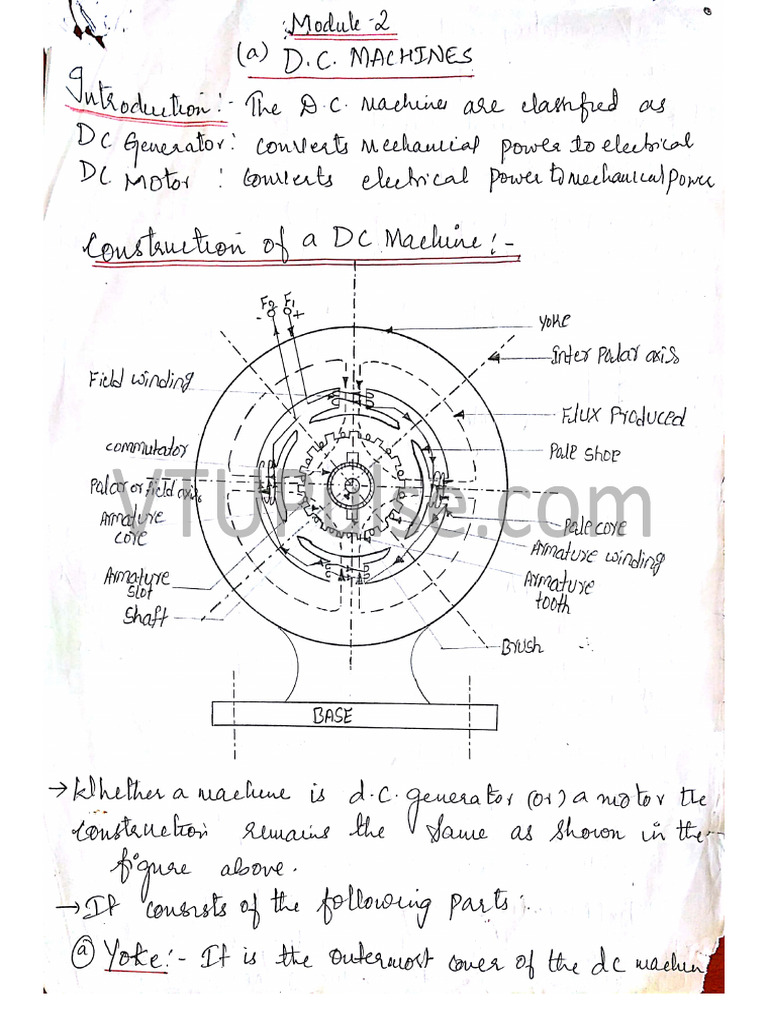 Module-2
(a) D.C. MACHINES
Introduction:- The D.C. Machines are classified as
DC Generator: converts mechanical power to electrical
DC Motor : converts electrical power to mechanical power
Construction of a DC Machine:-
F2 F1
- +
Yoke
Inter Polar axis
Field winding
Flux Produced
commutator
Pole shoe
Polar or Field axis
Armature
core
Pole core
Armature winding
Armature
slot
Armature
tooth
Shaft
Brush
BASE
VTUPulse.com
→ Whether a machine is d.c. generator (or) a motor the
construction remains the same as shown in the
figure above.
→ It consists of the following parts:
(a) Yoke:- It is the outermost cover of the dc machin